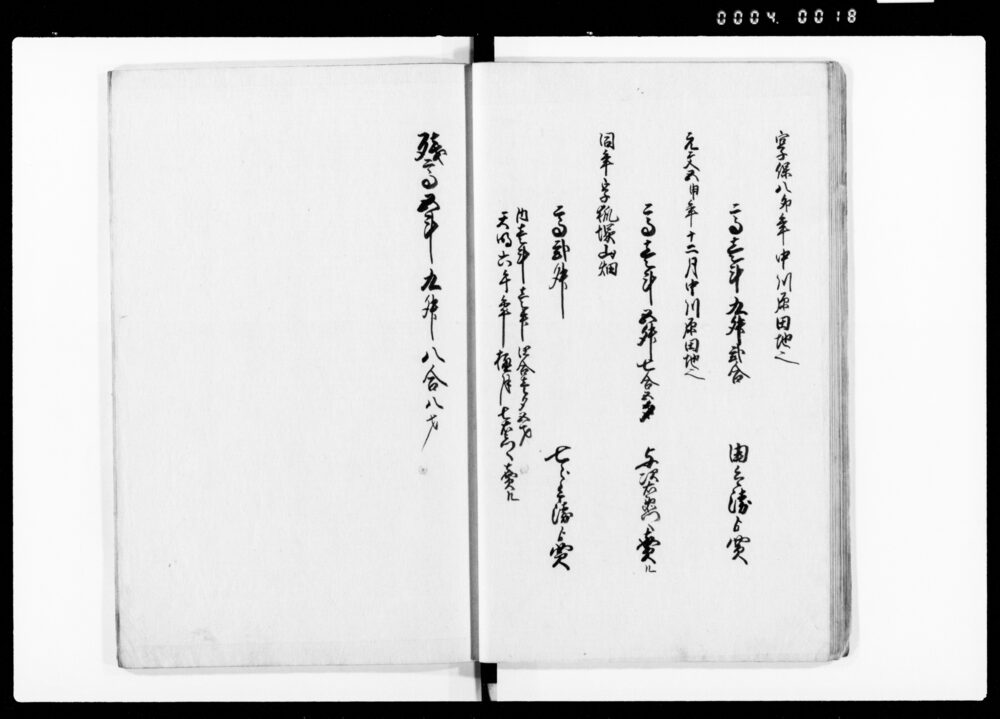 0004 0018
享保八卯年中川原田地之
一高壱斗九升弐合
より買
元文五申年十二月中川原田地之
一高壱斗五升七合五夕
与次右衛門へ賣ル
同年字狐塚山畑
一高弐升
より買
内壱斗壱升四合三夕五才
天明六午年極月七左衛門へ賣ル
残高五斗九升八合八才